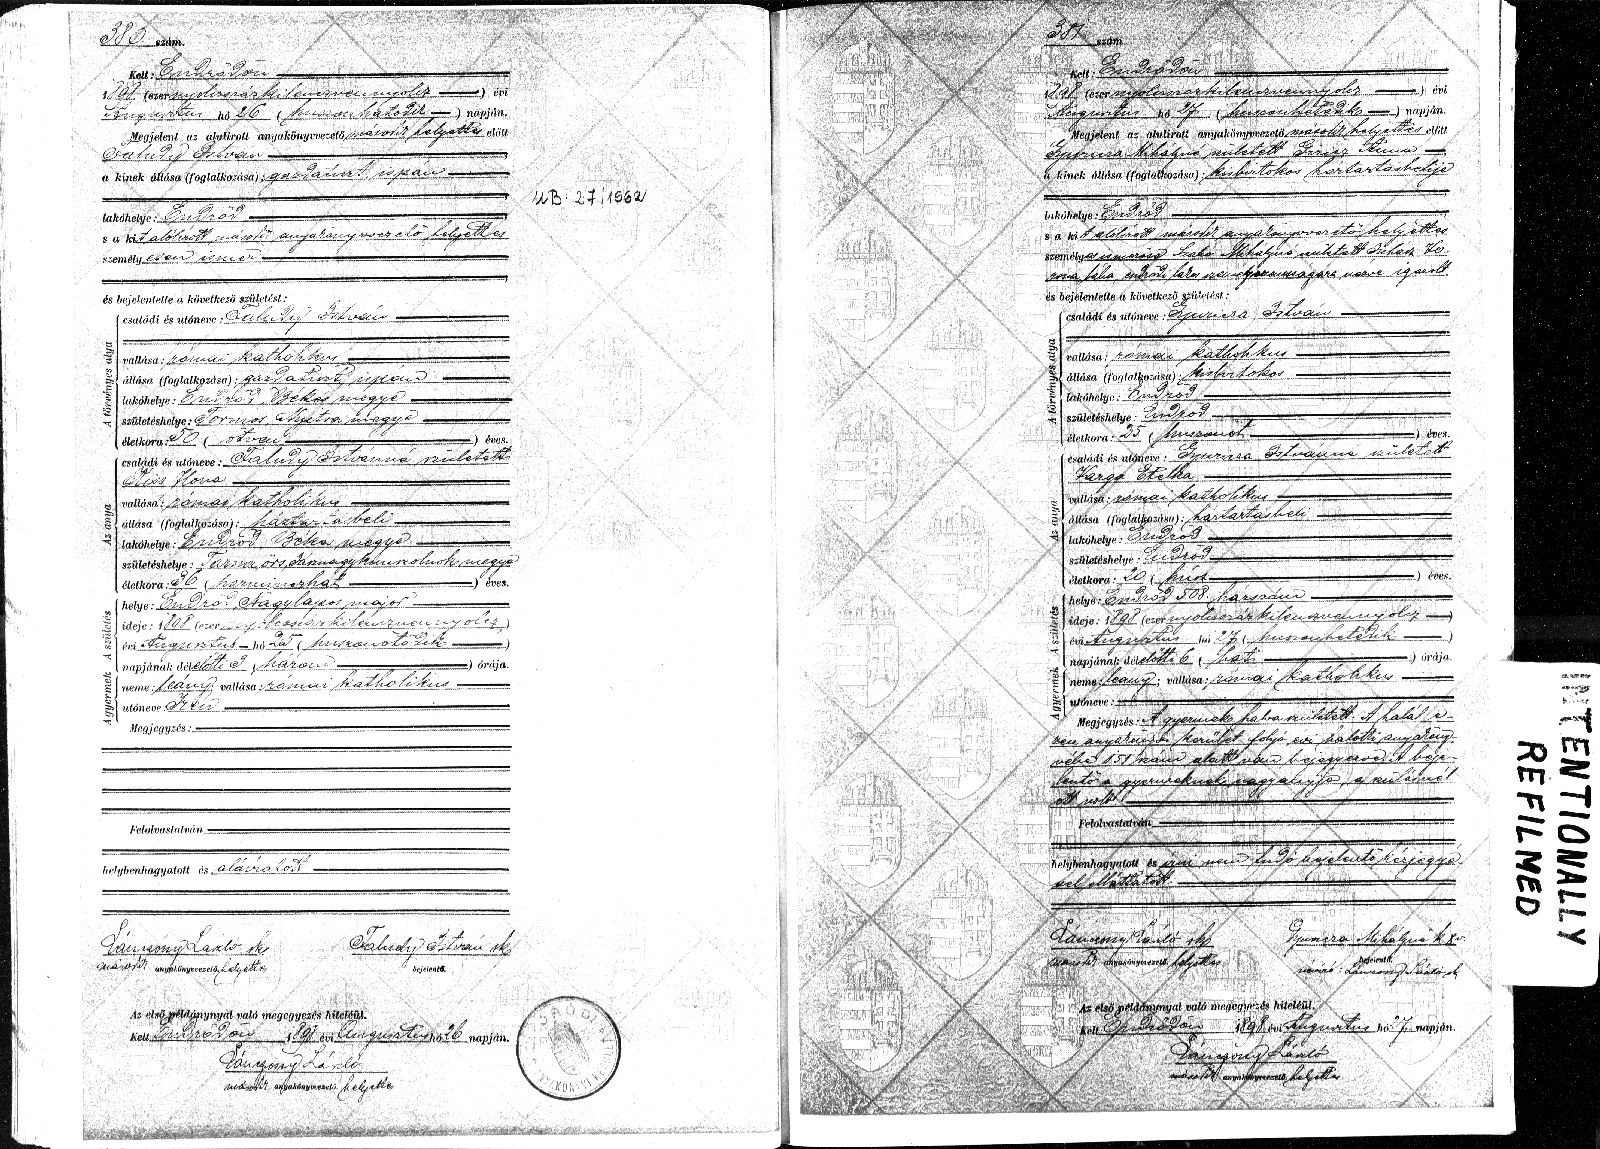 380 szám.
Kelt: Endrődön
1898 (ezernyolcszázkilencvennyolcz) évi
Augusztus hó 26 (huszonhatodik) napján.
Megjelent az alulirott anyakönyvvezető másodr helyettes előtt
Faludy István
a kinek állása (foglalkozása): gazdatiszt, ispán
lakóhelye: Endrőd
s a kit alólirott másodr anyakönyvvezető helyettes
személyesen ismer
és bejelentette a következő születést:
A törvényes atya
családi és utóneve: Faludy István
vallása: római katholikus
állása (foglalkozása): gazdatiszt, ispán
lakóhelye: Endrőd, Békés megye
születéshelye: Tormos, Nyitra megye
életkora: 50 (ötven) éves.
Az anya
családi és utóneve: Faludy Istvánné született
Ilona
vallása: római katholikus
állása (foglalkozása): háztartásbeli
lakóhelye: Endrőd, Békés megye
születéshelye: Jásznagykunszolnok megye
életkora: 36 (harminczhat) éves.
A születés
helye: Endrőd, Nagylapos major
ideje: 1898 (ezernyolcszázkilenczvennyolcz)
évi Augusztus hó 25 (huszonötödik)
napjának délelőtti 3 (három) órája.
A gyermek
neme: leány; vallása: római katholikus
utóneve:
Megjegyzés:
Felolvastatván
helybenhagyatott és aláíratott
László sk
másodr anyakönyvvezető helyettes
Faludy István sk
bejelentő.
Az első példánynyal való megegyezés hiteléül.
Kelt Endrődön 1898 évi Augusztus hó 26 napján.
László
másodr anyakönyvvezető helyettes
UB: 27/1962
381 szám
Kelt: Endrődön
1898 (ezernyolcszázkilenczvennyolcz) évi
Augusztus hó 27 (huszonhetedik) napján.
Megjelent az alulirott anyakönyvvezető másodr helyettes előtt
Gyuricza Mihályné született Anna
a kinek állása (foglalkozása): kisbirtokos háztartásbelije
lakóhelye: Endrőd
s a kit alólirott másodr anyakönyvvezető helyettes
személyesen Szabó Mihályné született
endrődi lakos személyazonosságára nézve igazolt
és bejelentette a következő születést:
A törvényes atya
családi és utóneve: Gyuricza István
vallása: római katholikus
állása (foglalkozása): kisbirtokos
lakóhelye: Endrőd
születéshelye: Endrőd
életkora: 25 (huszonöt) éves.
Az anya
családi és utóneve: Gyuricza Istvánné született
Varga Etelka
vallása: római katholikus
állása (foglalkozása): háztartásbeli
lakóhelye: Endrőd
születéshelye: Endrőd
életkora: 20 (húsz) éves.
A születés
helye: Endrőd 508 házszám
ideje: 1898 (ezernyolcszázkilenczvennyolcz)
évi Augusztus hó 27 (huszonhetedik)
napjának délelőtti 6 (hat) órája.
A gyermek
neme: leány; vallása: római katholikus
utóneve:
Megjegyzés: A gyermek halva született. A halál
anyakönyvi kerület folyó évi halotti anyaköny-
vében 151 szám alatt van bejegyezve. A beje-
lentő a gyermeknek nagyanyja, a szülésnél
ott volt
Felolvastatván
helybenhagyatott és írni nem tudó bejelentő kézjegyé-
vel elláttatott
László sk
másodr anyakönyvvezető helyettes
Gyuricza Mihályné k x v.
bejelentő.
László sk
Az első példánynyal való megegyezés hiteléül.
Kelt Endrődön 1898 évi Augusztus hó 27 napján.
László
másodr anyakönyvvezető helyettes
INTENTIONALLY
REFILMED